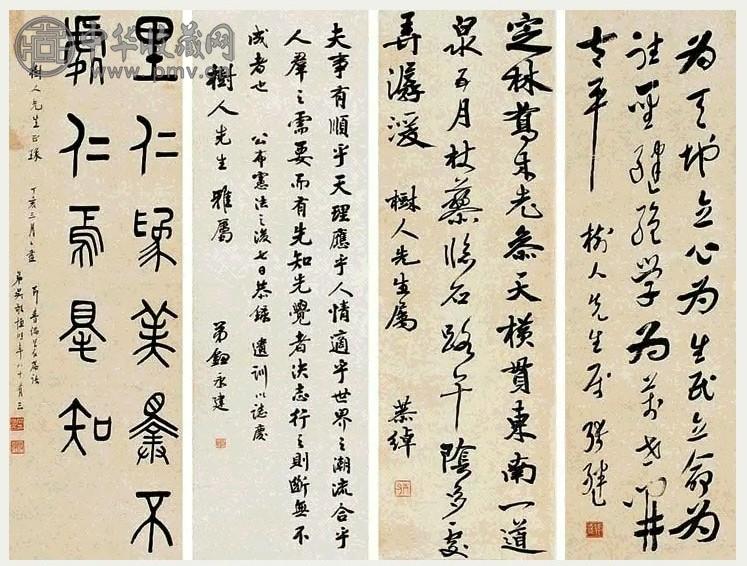 為天地立心為生民立命為
往聖繼絕學為萬世開
太平 樹人先生屬 張繼
定林喬木老參天橫貫東南一道
泉五月杖藜臨石路午陰多處
弄潺湲 樹人先生屬 恭綽
夫事有順乎天理應乎人情適乎世界之潮流合乎
人羣之需要而有先知先覺者決志行之則斷無不
成者也 公布憲法之後七日恭錄 遺訓以誌慶
樹人先生雅屬 弟鈕永建
里仁為美擇不
處仁焉得知
樹人先生正 丁亥三月之望
弟吳敬恒時年八十有三
中华收藏网